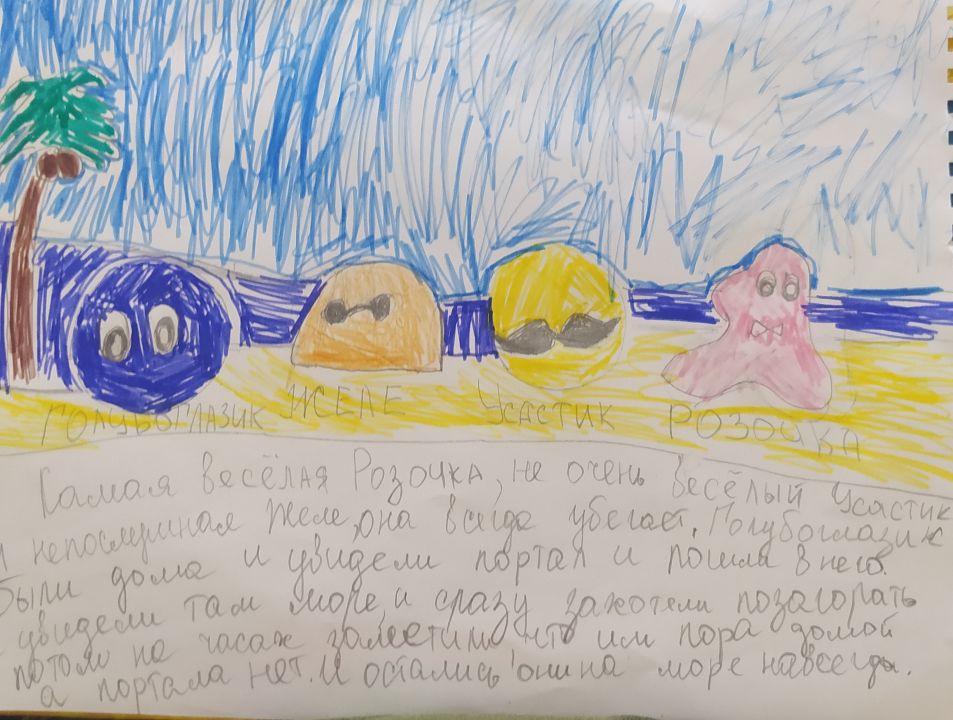 ГОЛУБОГЛАЗИК ЖЕЛЕ УСАСТИК РОЗОЧКА
Самая весёлая Розочка, не очень весёлый Усастик
и непослушная Желе, она всегда убегает. Голубоглазик
были дома и увидели портал и пошли в него.
увидели там море, и сразу захотели позагорать
потом на часах заметили что им пора домой
а портала нет. И остались они на море навсегда.